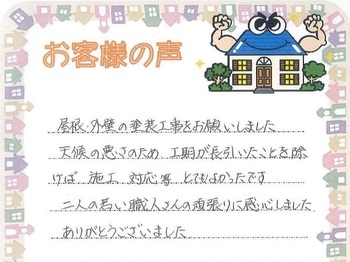 お客様の声
屋根・外壁の塗装工事をお願いしました
天候の悪さのため 工期が長引いたことを除
けば 施工、対応等 とてもよかったです
二人の若い職人さんの頑張りに感心しました
ありがとうございました